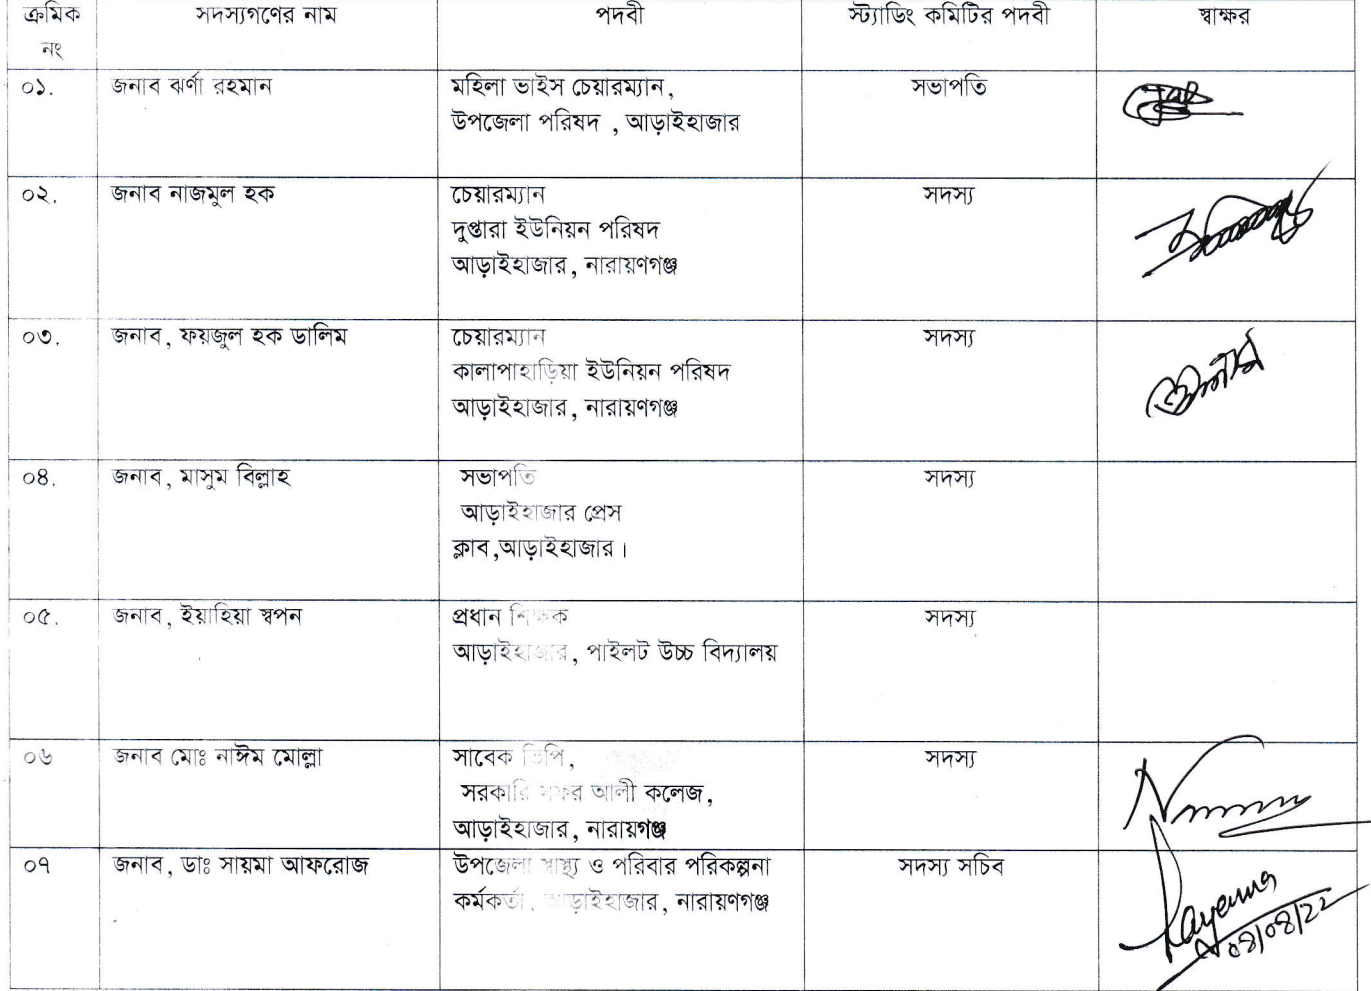 ক্রমিক নং সদস্যগণের নাম পদবী স্ট্যাডিং কমিটির পদবী স্বাক্ষর
০১. জনাব ঝর্ণা রহমান মহিলা ভাইস চেয়ারম্যান, সভাপতি
উপজেলা পরিষদ , আড়াইহাজার
০২. জনাব নাজমুল হক চেয়ারম্যান সদস্য
দুপ্তারা ইউনিয়ন পরিষদ
আড়াইহাজার, নারায়ণগঞ্জ
০৩. জনাব, ফয়জুল হক ডালিম চেয়ারম্যান সদস্য
কালাপাহাড়িয়া ইউনিয়ন পরিষদ
আড়াইহাজার, নারায়ণগঞ্জ
০৪. জনাব, মাসুম বিল্লাহ সভাপতি সদস্য
আড়াইহাজার প্রেস
ক্লাব,আড়াইহাজার।
০৫. জনাব, ইয়াহিয়া স্বপন প্রধান শিক্ষক সদস্য
আড়াইহাজার, পাইলট উচ্চ বিদ্যালয়
০৬ জনাব মোঃ নাঈম মোল্লা সাবেক ভিপি, সদস্য
সরকারি সফর আলী কলেজ,
আড়াইহাজার, নারায়গঞ্জ
০৭ জনাব, ডাঃ সায়মা আফরোজ উপজেলা স্বাস্থ্য ও পরিবার পরিকল্পনা সদস্য সচিব
কর্মকর্তা, আড়াইহাজার, নারায়ণগঞ্জ
Sayema
০৪/০৪/22